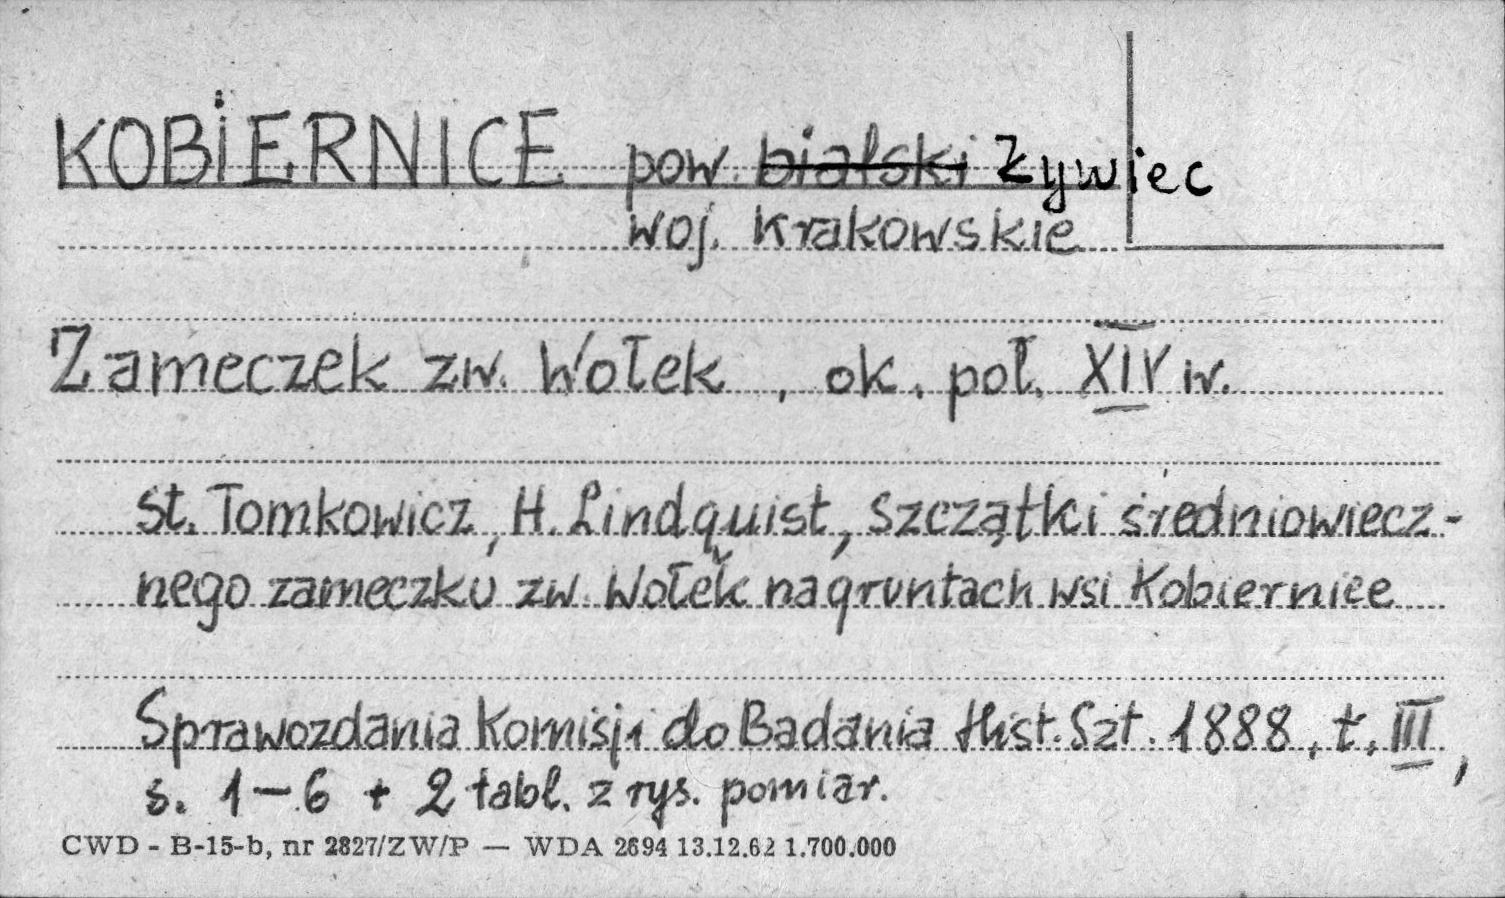 KOBIERNICE pow. bialski Żywiec
woj. Krakowskie
Zameczek zw. Wołek, ok. poł. XIV w.
St. Tomkowicz, H. Lindquist, Szczątki średniowiecz-
nego zameczku zw. Wołek na gruntach wsi Kobiernice
Sprawozdania Komisji do Badania Hist. Szt. 1888, t. III,
s. 1-6 + 2 tabl. z rys. pomiar.
CWD - B-15-b, nr 2827/ZW/P — WDA 2694 13.12.62 1.700.000